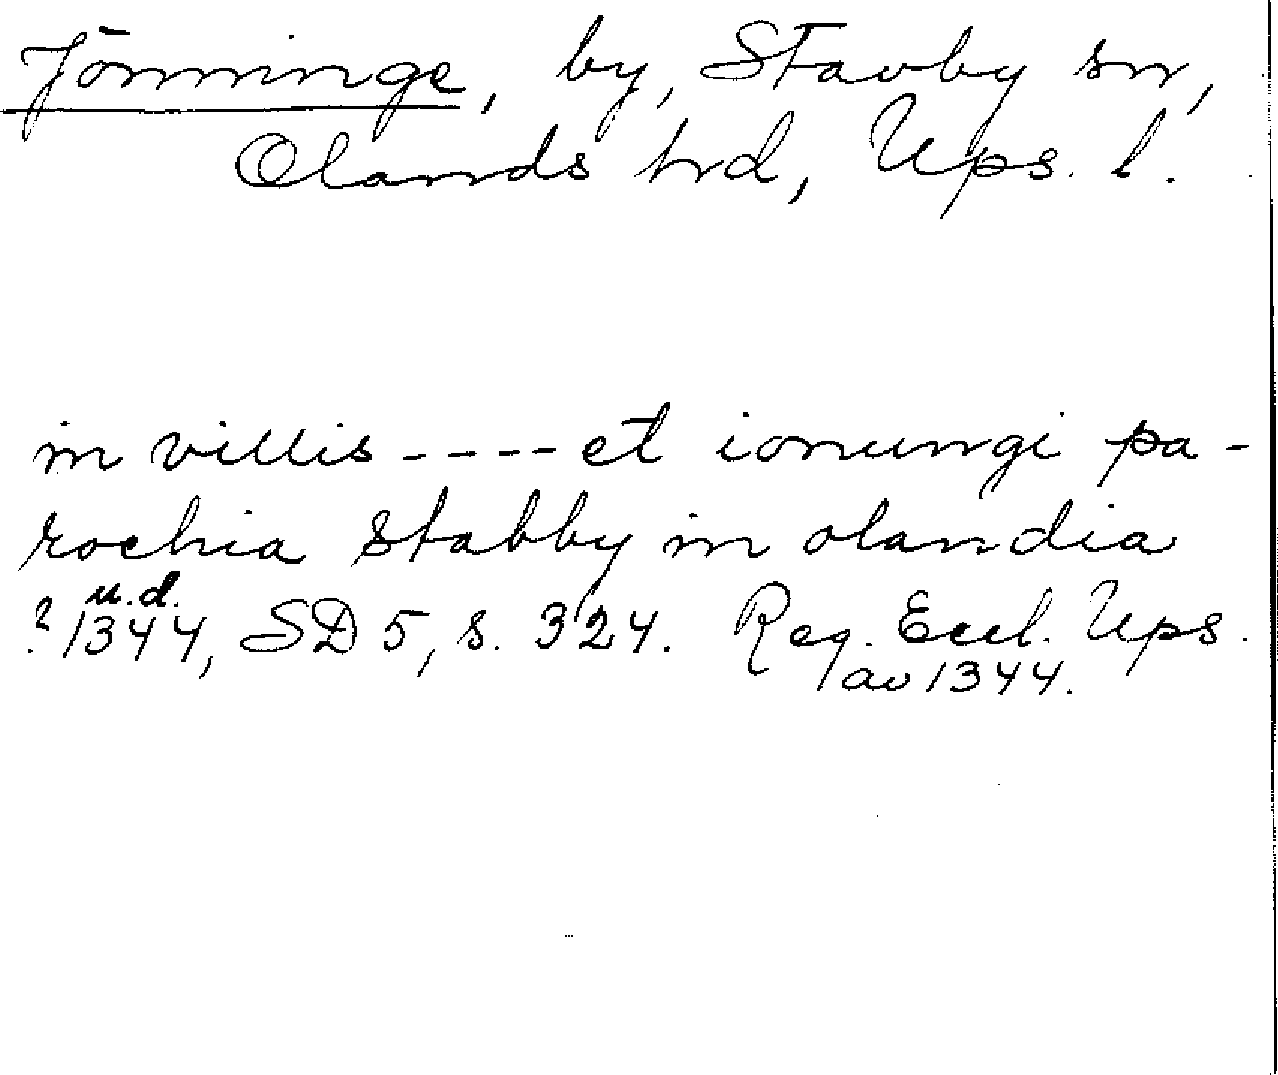 Jönninge, by, Stavby sn,
Olands hrd, Ups. l.
in villis ---- et ionungi pa-
rochia Stabby in olandia
u.d.
? 1344, SD 5, s. 324. Reg. Eccl. Ups.
av 1344.